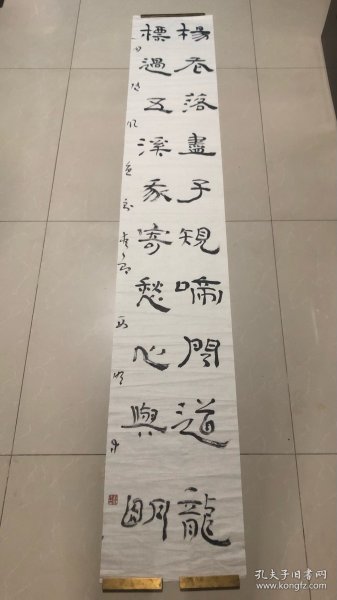 楊花落盡子規啼聞道龍
標過五溪我寄愁心與明
月随风
孔夫子旧书网
www.kongfz.com